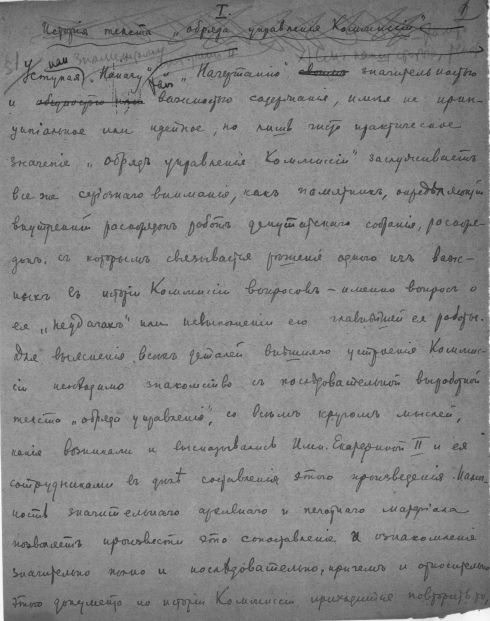 I.
Исторія текста „обряда управленія Коммиссіи"
Уступая „Наказу" или „Начертанію" значительностью
и важностью содержанія, имѣя не прин-
ципіальное или идейное, но лишь чисто практическое
значеніе „обрядъ управленія Коммиссіи" заслуживаетъ
все же серьезнаго вниманія, какъ памятникъ, опредѣляющій
внутренній распорядокъ работъ депутатскаго собранія, распоря-
докъ, съ которымъ связывается рѣшеніе одного изъ важ-
ныхъ въ исторіи Коммиссіи вопросовъ – именно вопроса о
ея „неудачахъ" или невыполненіи ею главнѣйшей ея работы.
Для выясненія всѣхъ деталей внѣшняго устроенія Коммис-
сіи необходимо знакомство съ послѣдовательной выработкой
текста „обряда управленія", со всѣмъ кругомъ мыслей,
какія возникали и высказывались Имп. Екатериной II и ея
сотрудниками въ дѣлѣ составленія этого произведенія. Налич-
ность значительнаго архивнаго и печатнаго матеріала
позволяетъ произвести это сопоставленіе и ознакомленіе
значительно полно и послѣдовательно, причемъ и относительно
этого документа по исторіи Коммиссіи приходится повторить то,